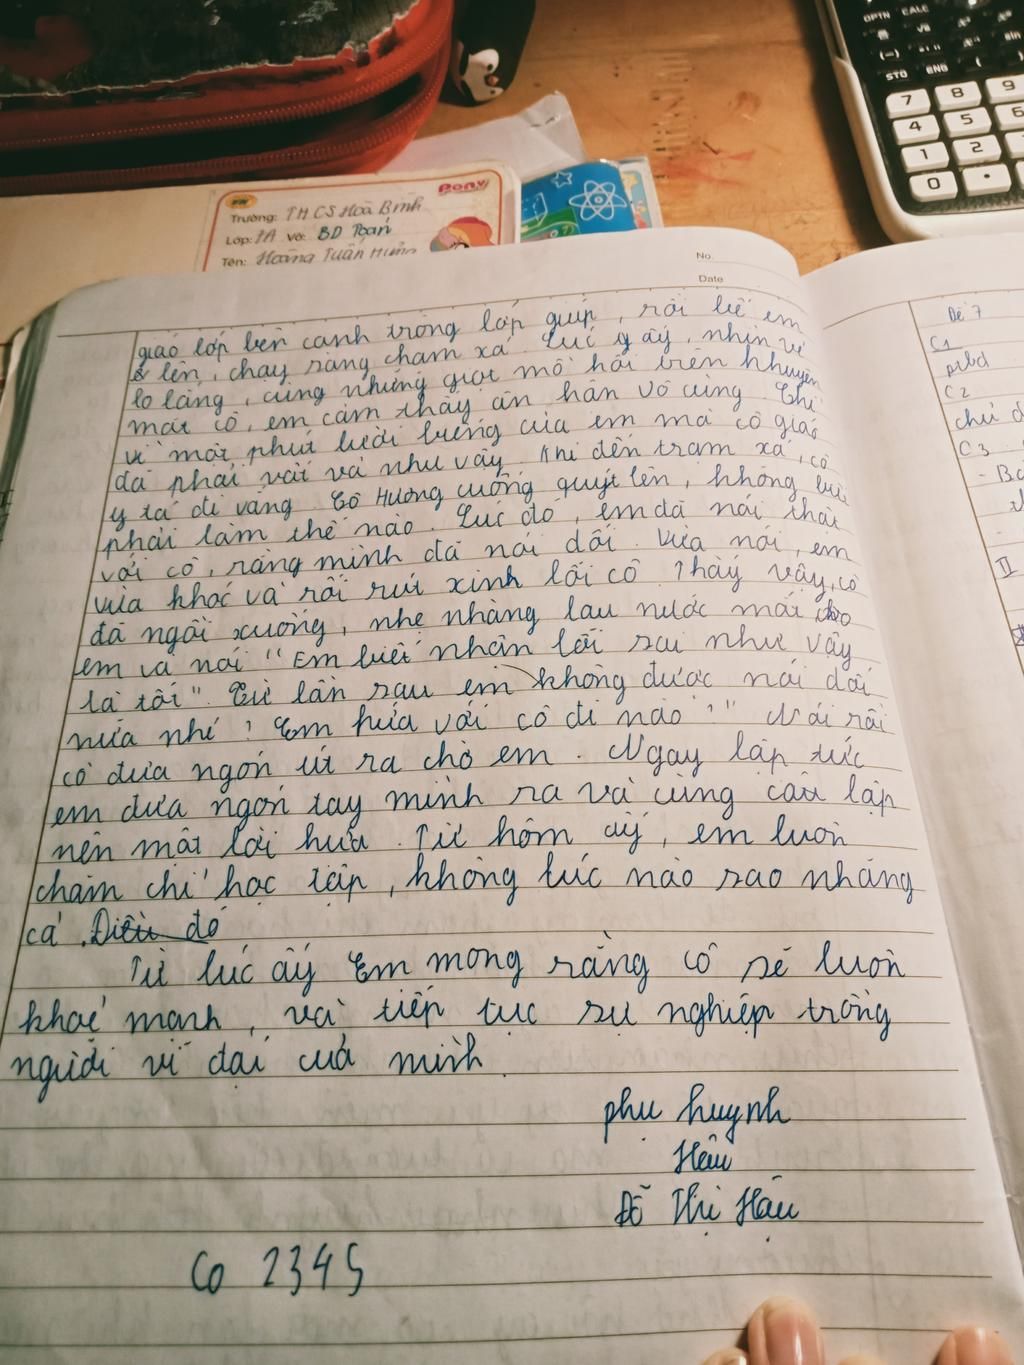 OPTN CALC
STO ENG
7 8 9
4 5 6
1 2
0 •
Pony
Trường: THCS Hoà Bình
Lớp: 7A Vở: BD Toán
Tên: Hoàng Tuấn Hưng
No.
Date
giáo lớp bên cạnh trông lớp giúp, rồi bế em
lên, chạy sang trạm xá. Lúc ấy, nhìn vẻ
lo lắng, cùng những giọt mồ hôi trên khuyên
mặt cô, em cảm thấy ân hận vô cùng. Chỉ
vì một phút lười biếng của em mà cô giáo
đã phải vất vả như vậy. Khi đến trạm xá, cô
y tá đi vắng. Cô Hương cuống quýt lên, không biết
phải làm thế nào. Lúc đó, em đã nói thật
với cô, rằng mình đã nói dối. Vừa nói, em
vừa khóc và rối rít xinh lỗi cô. Thấy vậy, cô
đã ngồi xuống, nhẹ nhàng lau nước mắt cho
em và nói "Em biết nhận lỗi sai như vậy
là tốt". Từ lần sau em không được nói dối
nữa nhé! Em hứa với cô đi nào!" Nói rồi
cô đưa ngón út ra chờ em. Ngay lập tức
em đưa ngón tay mình ra và cùng cô lập
nên một lời hứa. Từ hôm ấy, em luôn
chăm chỉ học tập, không lúc nào sao nhãng
cả. Điều đó
Từ lúc ấy Em mong rằng cô sẽ luôn
khoẻ mạnh, và tiếp tục sự nghiệp trồng
người vĩ đại của mình.
phụ huynh
Hậu
Đỗ Thị Hậu
Co 2345
Đề 7
C1
ptbđ
C2
chủ đ
C3
II